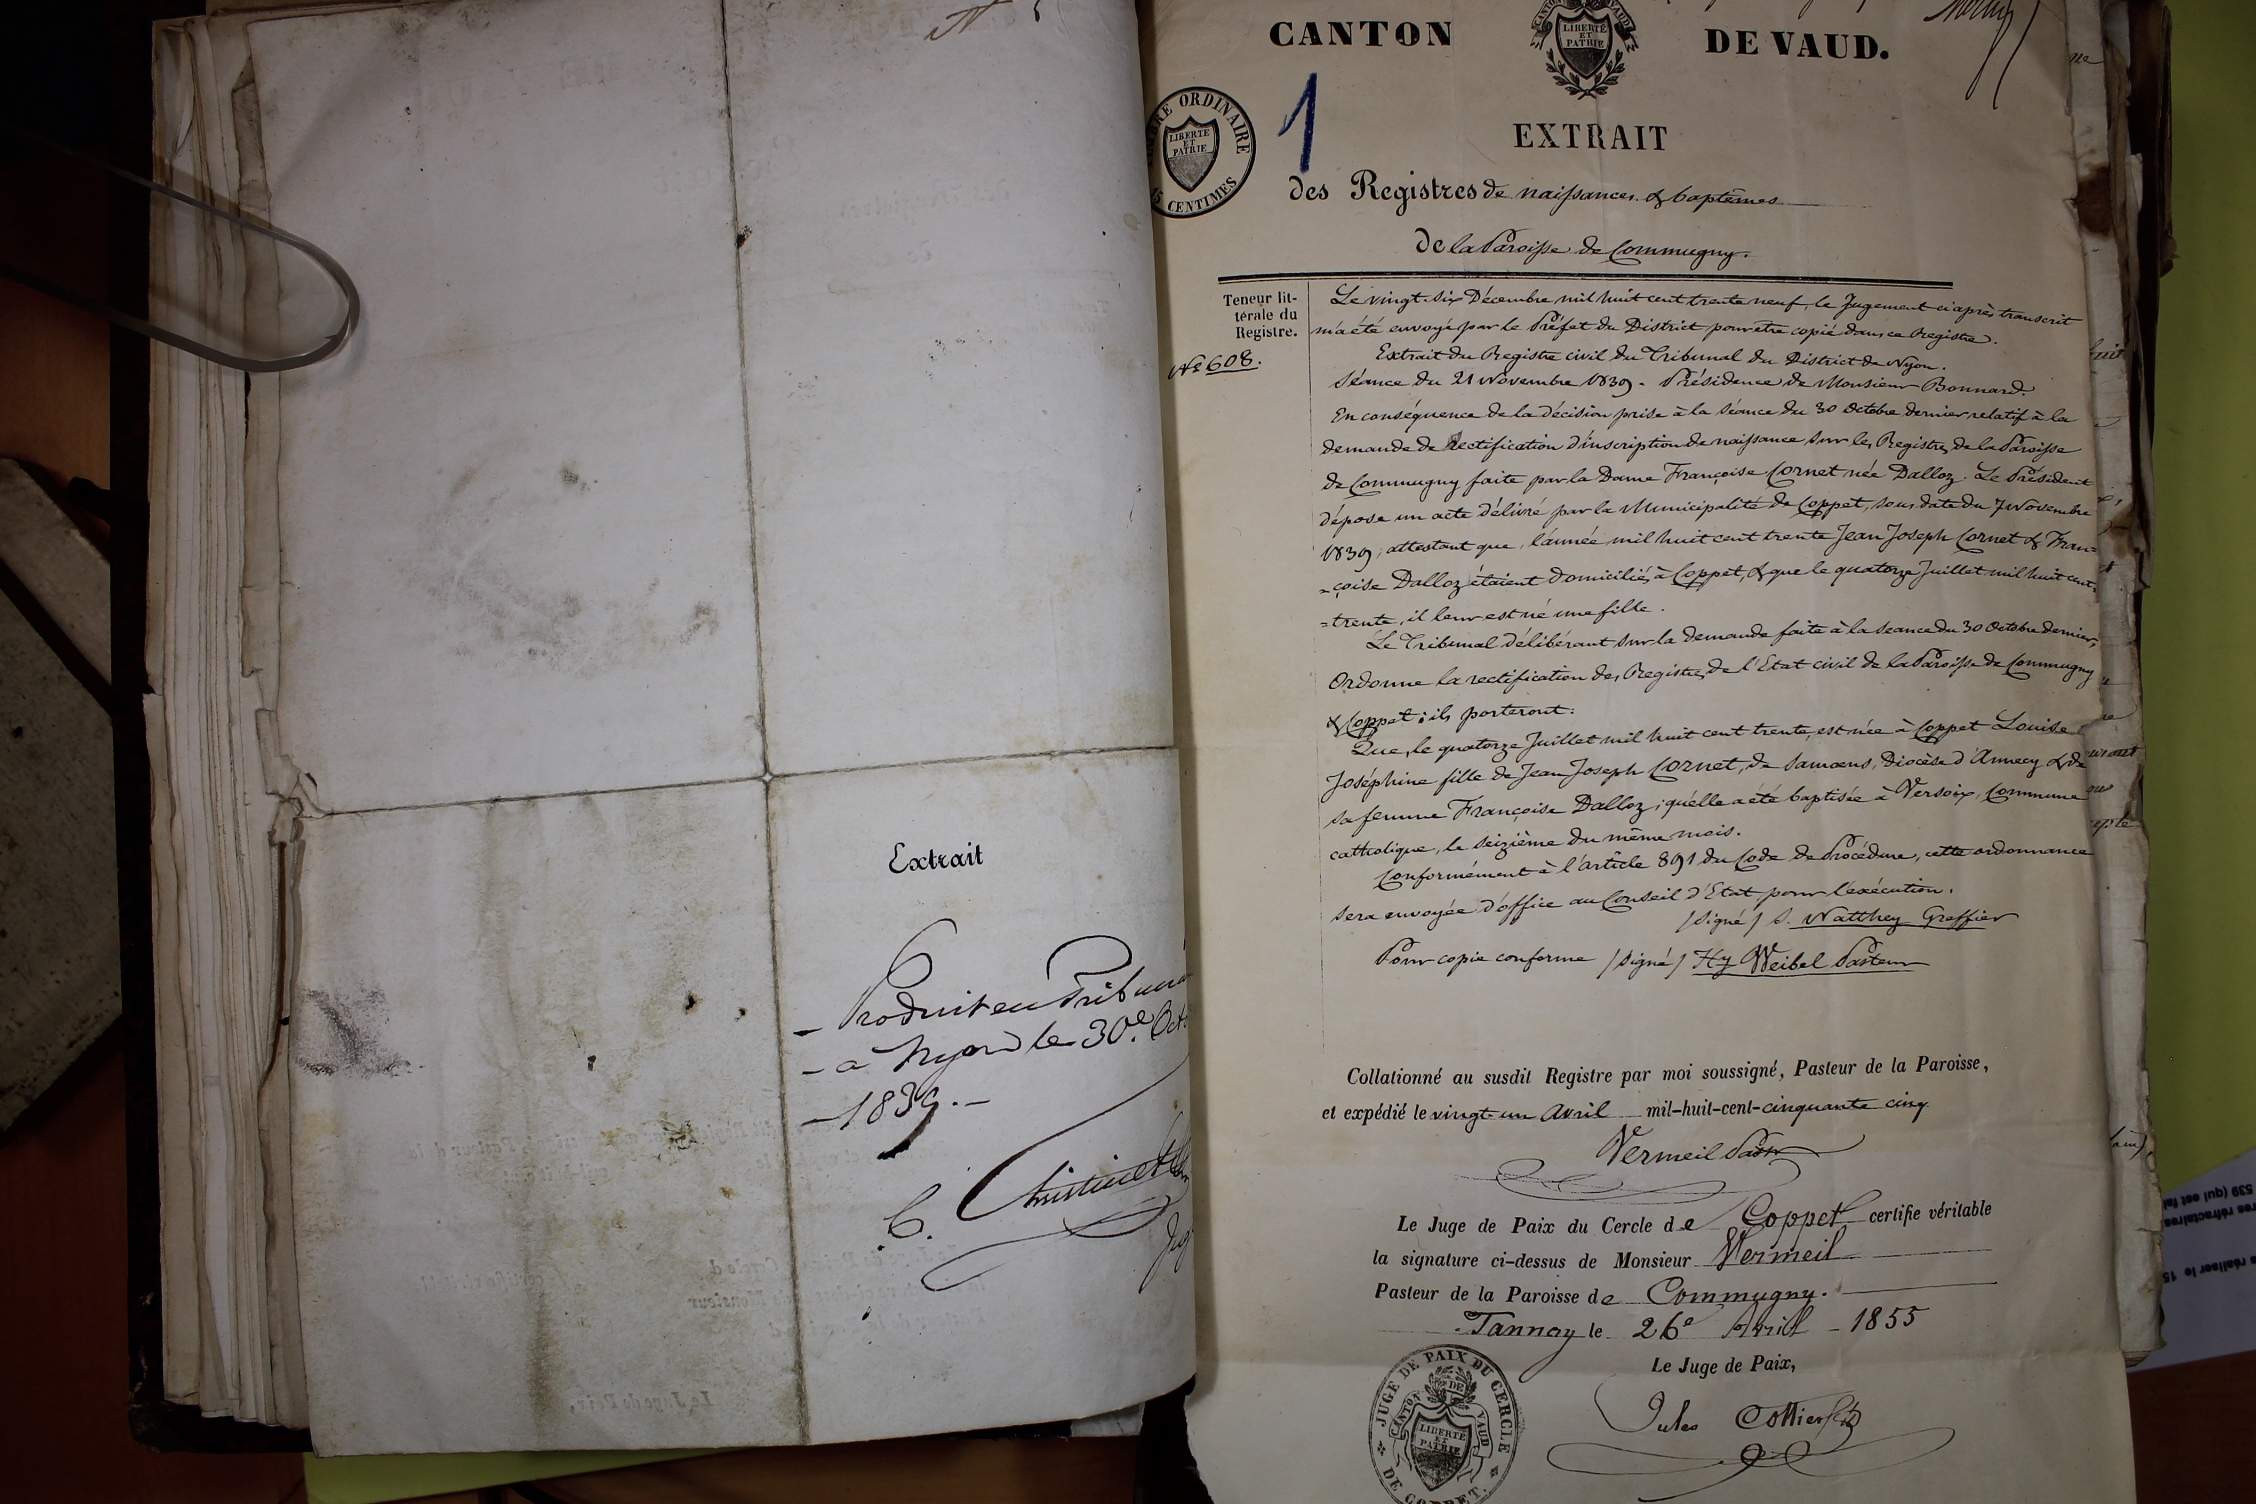 Extrait
- Produit en Tribunal
- à Nyon le 30.e Oct.
- 1839. -
CANTON DE VAUD.
CANTON VAUD
LIBERTÉ
ET
PATRIE
TIMBRE ORDINAIRE
LIBERTE
ET
PATRIE
15 CENTIMES
1
EXTRAIT
des Registres de naissances & baptêmes
de la Paroisse de Commugny.
Teneur lit-
térale du
Registre.
No 608.
Le vingt-six Décembre mil huit cent trente neuf, le Jugement ci après transcrit
m'a été envoyé par le Préfet du District pour être copié dans ce Registre.
Extrait du Registre civil du Tribunal du District de Nyon.
Séance du 21 Novembre 1839. Présidence de Monsieur Bonnard.
En conséquence de la décision prise à la séance du 30 Octobre dernier relatif à la
demande de Rectification d'inscription de naissance sur les Registres de la Paroisse
de Commugny faite par la Dame Françoise Cornet née Dalloz. Le Président
dépose un acte délivré par la Municipalité de Coppet, sous date du 7 Novembre
1839, attestant que, l'année mil huit cent trente Jean Joseph Cornet & Fran=
=çoise Dalloz étaient domiciliés à Coppet, & que le quatorze Juillet mil huit cent
=trente, il leur est né une fille.
Le Tribunal délibérant sur la demande faite à la séance du 30 Octobre dernier,
Ordonne la rectification des Registres de l'Etat civil de la Paroisse de Commugny
& Coppet; ils porteront:
Que, le quatorze Juillet mil huit cent trente, est née à Coppet Louise
Joséphine fille de Jean Joseph Cornet, de Samoens, Diocèse d'Annecy & de
sa femme Françoise Dalloz; qu'elle a été baptisée à Versoix, Commune
catholique, le seizième du même mois.
Conformément à l'article 891 du Code de Procédure, cette ordonnance
sera envoyée d'office au Conseil d'Etat pour l'exécution.
/signé/ S. Watthey Greffier
Pour copie conforme /signé/ Hy Weibel Pasteur
Collationné au susdit Registre par moi soussigné, Pasteur de la Paroisse,
et expédié le vingt-un Avril mil-huit-cent-cinquante cinq
Vermeil Pastr
Le Juge de Paix du Cercle de Coppet certifie véritable
la signature ci-dessus de Monsieur Vermeil
Pasteur de la Paroisse de Commugny.
Tannay le 26e Avril - 1855
Le Juge de Paix,
Jules
JUGE DE PAIX DU CERCLE
DE COPPET.
CANTON DE VAUD
LIBERTÉ
ET
PATRIE